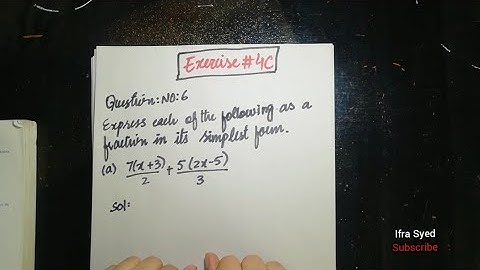 Exercise #4C
Question: NO: 6
Express each of the following as a
fraction in its simplest form.
(a) 7(x+3)/2 + 5(2x-5)/3
Sol:
Ifra Syed
Subscribe